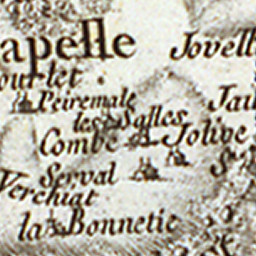 apelle
Jovell
our let
Peiremale
les Salles
Jau
Combe
Jolive
Serval
Verchiat
la Bonnetie